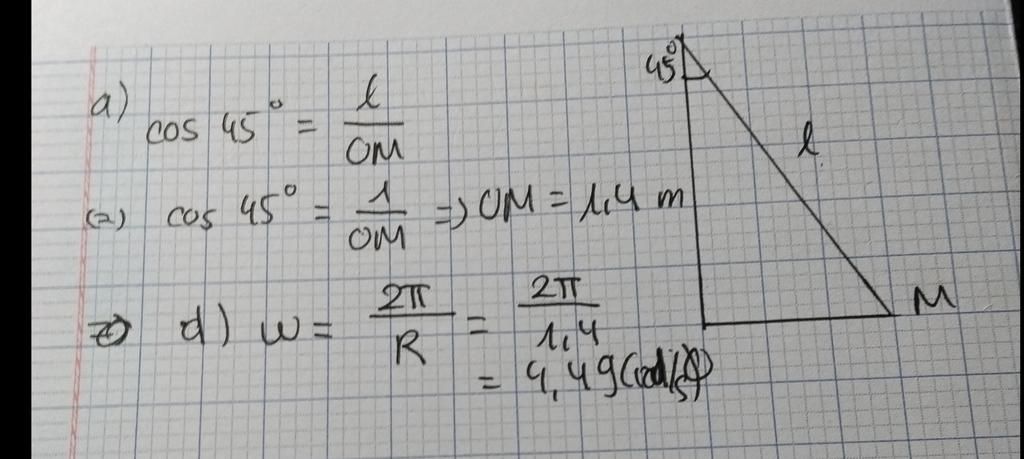 a) cos 45° = l/OM
(=) cos 45° = 1/OM => OM = 1,4 m
=> d) w = 2π/R = 2π/1,4
= 4,49 (rad/s)
45°
l
M